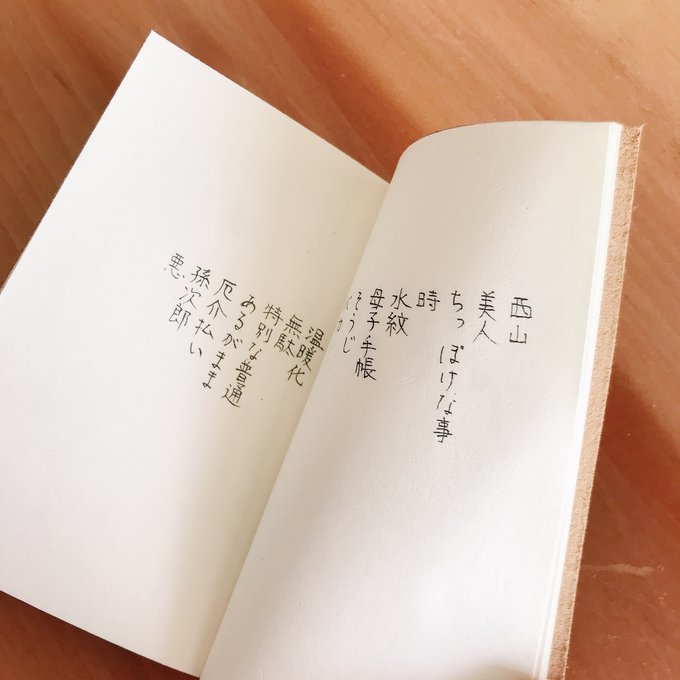 西山
美人
ちっぽけな事
時
水紋
母子手帳
そうじ
温暖化
無駄
特別な普通
あるがまま
厄介払い
孫次郎
悪